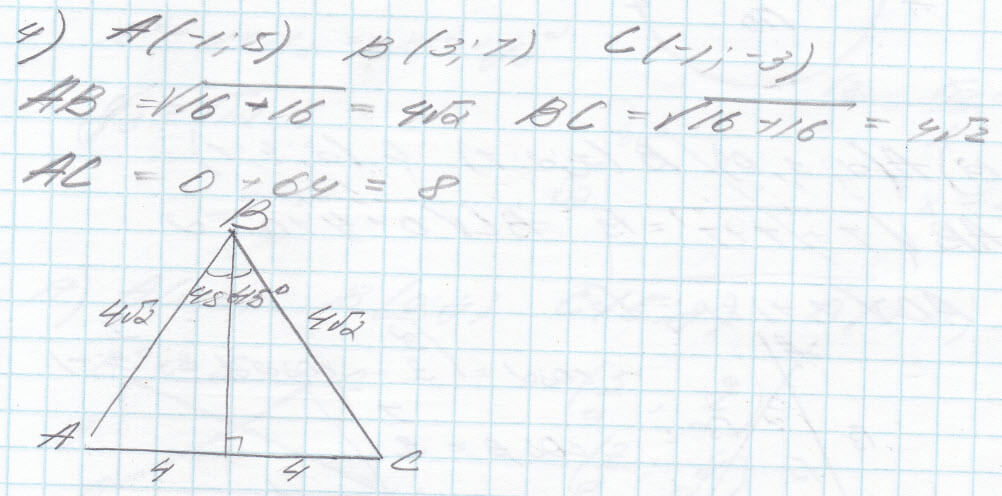 4) A(-1; 5) B(3; 1) C(-1; -3)
AB = √16+16 = 4√2 BC = √16+16 = 4√2
AC = 0+64 = 8
B
45 45°
4√2 4√2
A C
4 4